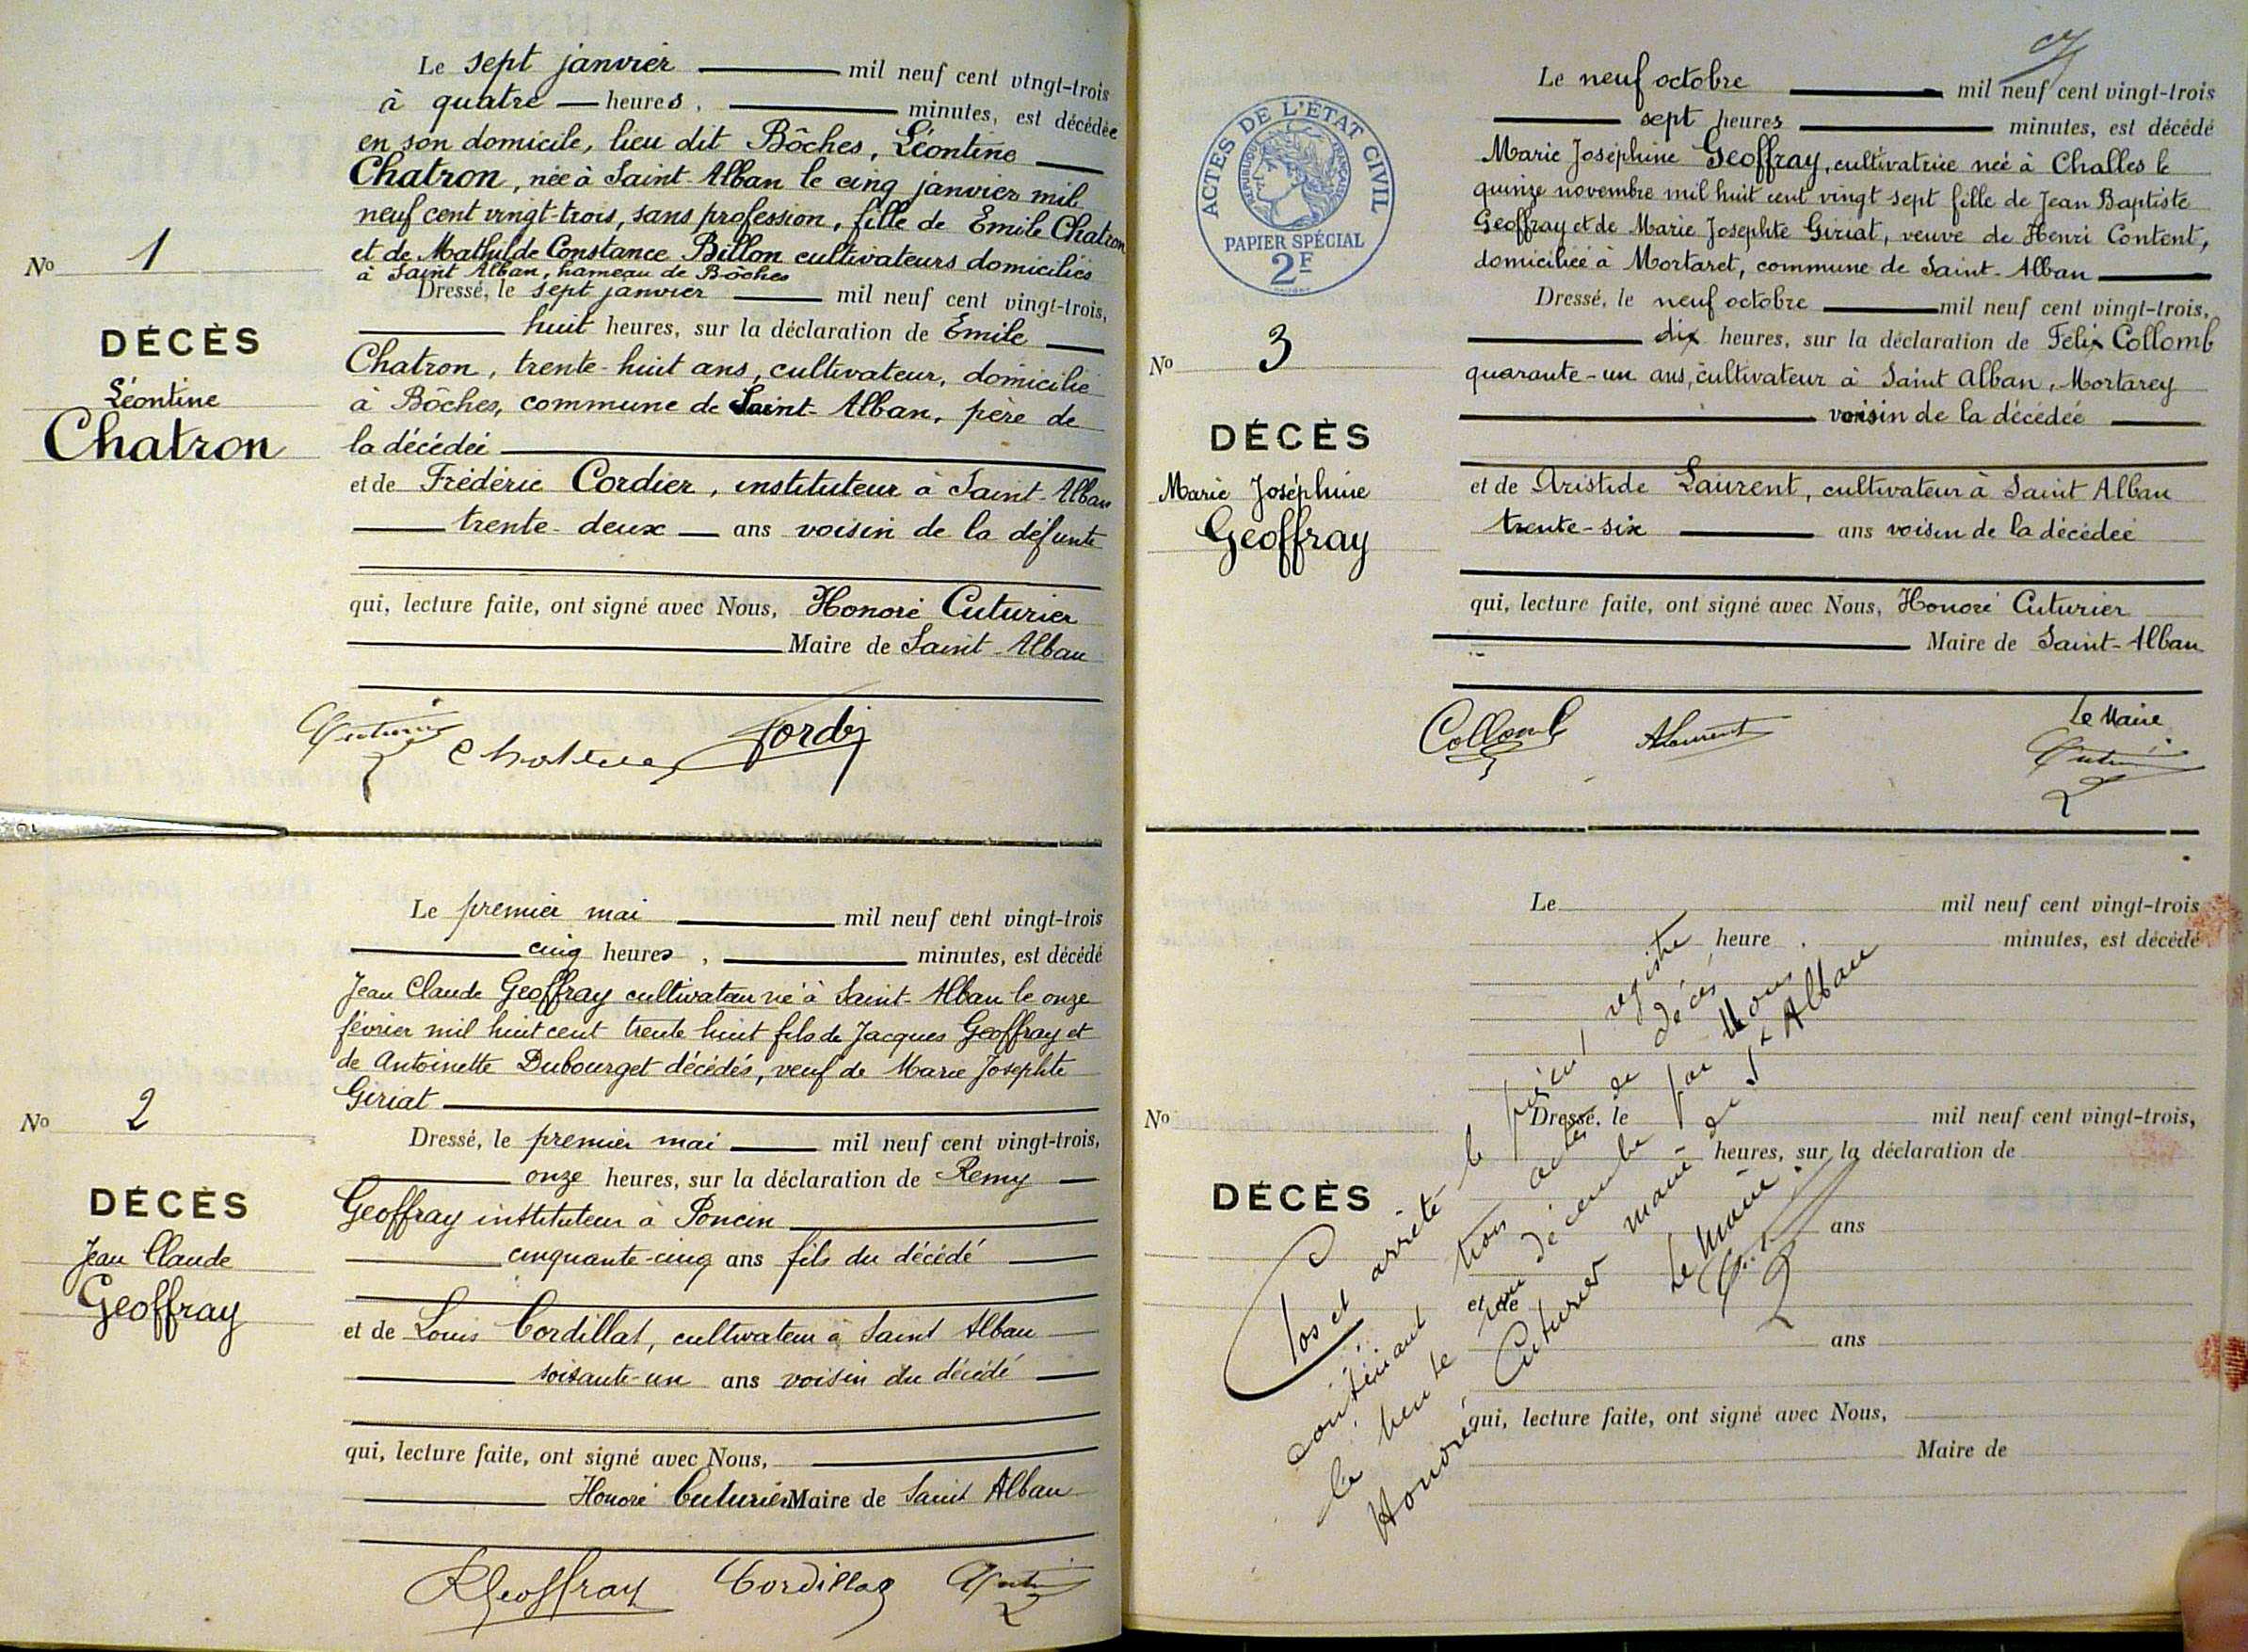 Le sept janvier mil neuf cent vingt-trois
à quatre heures, minutes, est décédée
en son domicile, lieu dit Bôches, Léontine
Chatron, née à Saint-Alban le cinq janvier mil
neuf cent vingt-trois, sans profession, fille de Emile Chatron
et de Mathilde Constance Billon cultivateurs domiciliés
à Saint Alban, hameau de Bôches
No 1
DÉCÈS
Léontine
Chatron
Dressé, le sept janvier mil neuf cent vingt-trois,
huit heures, sur la déclaration de Emile
Chatron, trente-huit ans, cultivateur, domicilié
à Bôches, commune de Saint-Alban, père de
la décédée
et de Frédéric Cordier, instituteur à Saint-Alban
trente-deux ans voisin de la défunte
qui, lecture faite, ont signé avec Nous, Honoré Cuturier
Maire de Saint-Alban
Le premier mai mil neuf cent vingt-trois
cinq heures, minutes, est décédé
Jean Claude Geoffray cultivateur né à Saint-Alban le onze
février mil huit cent trente huit fils de Jacques Geoffray et
de Antoinette Dubourget décédés, veuf de Marie Josephte
Giriat
No 2
DÉCÈS
Jean Claude
Geoffray
Dressé, le premier mai mil neuf cent vingt-trois,
onze heures, sur la déclaration de Remy
Geoffray instituteur à Poncin
cinquante-cinq ans fils du décédé
et de Louis Cordillat, cultivateur à Saint Alban
soixante-un ans voisin du décédé
qui, lecture faite, ont signé avec Nous,
Honoré Cuturier Maire de Saint Alban
RGeoffray Cordillat
Le neuf octobre mil neuf cent vingt-trois
sept heures minutes, est décédé
Marie Joséphine Geoffray, cultivatrice née à Challes le
quinze novembre mil huit cent vingt sept fille de Jean Baptiste
Geoffray et de Marie Josephte Giriat, veuve de Henri Content,
domiciliée à Mortaret, commune de Saint-Alban
ACTES DE L'ÉTAT CIVIL
RÉPUBLIQUE FRANÇAISE
PAPIER SPÉCIAL
2F
No 3
DÉCÈS
Marie Joséphine
Geoffray
Dressé, le neuf octobre mil neuf cent vingt-trois,
dix heures, sur la déclaration de Félix Collomb
quarante-un ans, cultivateur à Saint Alban, Mortarey
voisin de la décédée
et de Aristide Laurent, cultivateur à Saint Alban
trente-six ans voisin de la décédée
qui, lecture faite, ont signé avec Nous, Honoré Cuturier
Maire de Saint-Alban
Collomb ALaurent Le Maire
Le mil neuf cent vingt-trois
heure, minutes, est décédé
No
DÉCÈS
Dressé, le mil neuf cent vingt-trois,
heures, sur la déclaration de
ans
et de
ans
qui, lecture faite, ont signé avec Nous,
Maire de
Clos et arrêté le présent registre
contenant trois actes de décès
le trente un décembre par Nous
Honoré Cuturier maire de St Alban
Le Maire